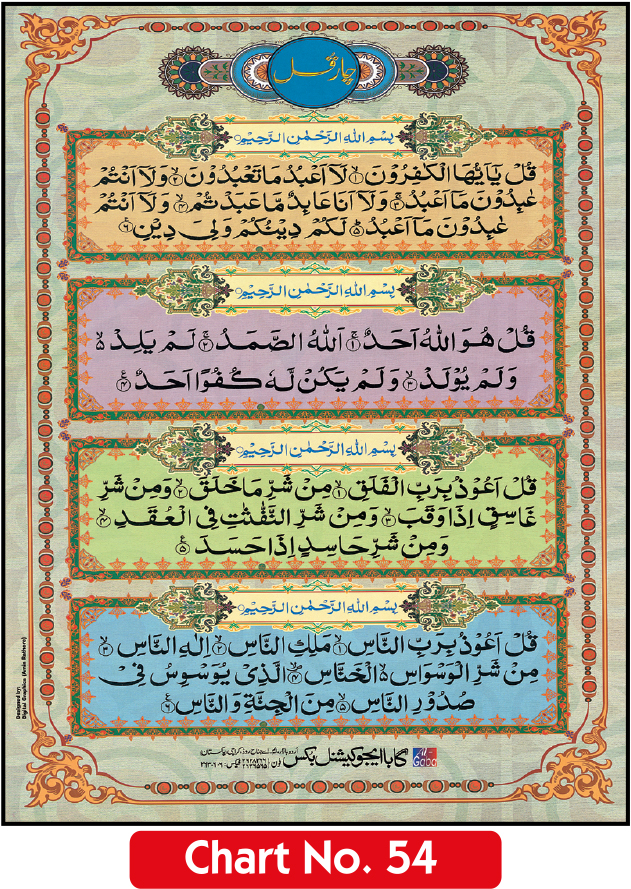 چار قل
بِسْمِ اللهِ الرَّحْمٰنِ الرَّحِيْمِ
قُلْ يٰۤاَيُّهَا الْكٰفِرُوْنَ ۙ۱ لَاۤ اَعْبُدُ مَا تَعْبُدُوْنَ ۙ۲ وَلَاۤ اَنْتُمْ
عٰبِدُوْنَ مَاۤ اَعْبُدُ ۚ۳ وَلَاۤ اَنَا عَابِدٌ مَّا عَبَدْتُّمْ ۙ۴ وَلَاۤ اَنْتُمْ
عٰبِدُوْنَ مَاۤ اَعْبُدُ ؕ۵ لَكُمْ دِيْنُكُمْ وَلِيَ دِيْنِ ۶
بِسْمِ اللهِ الرَّحْمٰنِ الرَّحِيْمِ
قُلْ هُوَ اللهُ اَحَدٌ ۚ۱ اَللهُ الصَّمَدُ ۚ۲ لَمْ يَلِدْ ۙ
وَلَمْ يُوْلَدْ ۙ۳ وَلَمْ يَكُنْ لَّهٗ كُفُوًا اَحَدٌ ۴
بِسْمِ اللهِ الرَّحْمٰنِ الرَّحِيْمِ
قُلْ اَعُوْذُ بِرَبِّ الْفَلَقِ ۙ۱ مِنْ شَرِّ مَا خَلَقَ ۙ۲ وَمِنْ شَرِّ
غَاسِقٍ اِذَا وَقَبَ ۙ۳ وَمِنْ شَرِّ النَّفّٰثٰتِ فِي الْعُقَدِ ۙ۴
وَمِنْ شَرِّ حَاسِدٍ اِذَا حَسَدَ ۵
بِسْمِ اللهِ الرَّحْمٰنِ الرَّحِيْمِ
قُلْ اَعُوْذُ بِرَبِّ النَّاسِ ۙ۱ مَلِكِ النَّاسِ ۙ۲ اِلٰهِ النَّاسِ ۙ۳
مِنْ شَرِّ الْوَسْوَاسِ ۵ الْخَنَّاسِ ۙ۴ الَّذِيْ يُوَسْوِسُ فِيْ
صُدُوْرِ النَّاسِ ۙ۵ مِنَ الْجِنَّةِ وَالنَّاسِ ۶
Designed by:
Digital Graphics (Amin Bustrom)
Al-Gaba گابا ایجوکیشنل بکس
Chart No. 54